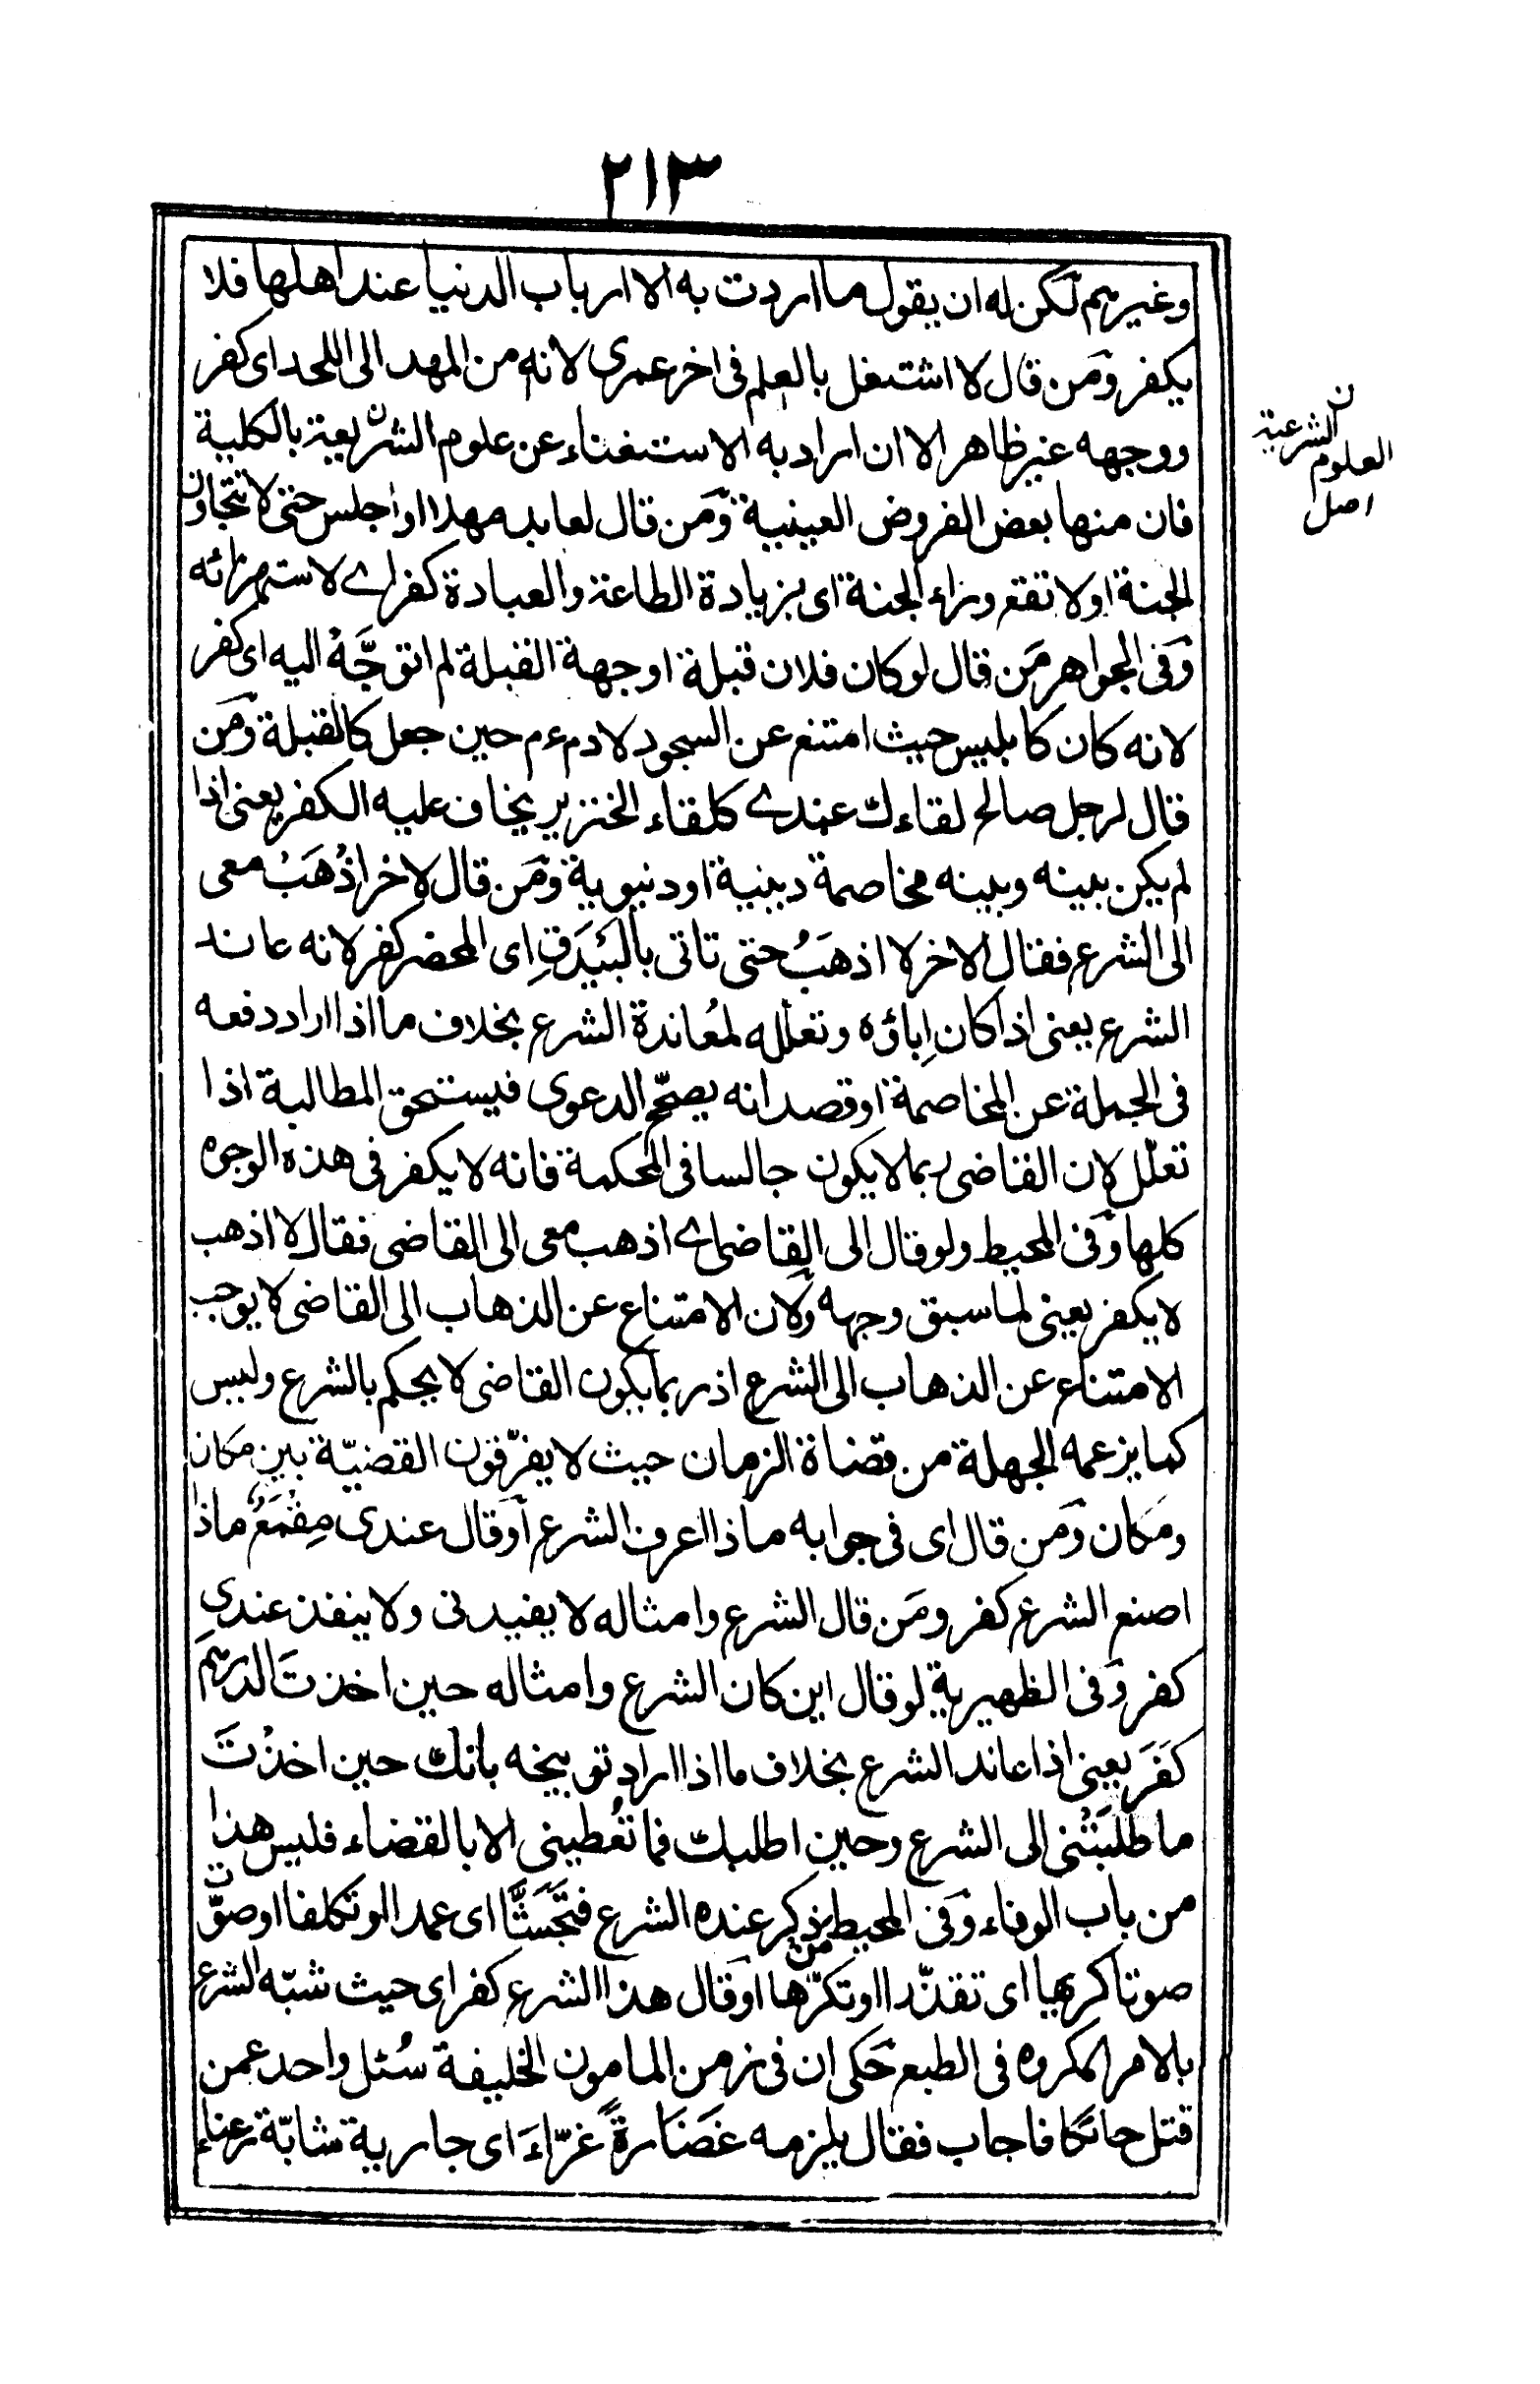 ٢١٣
وغيرهم لكن له ان يقول ما اردت به الا ارباب الدنيا عند اهلها فلا
يكفر ومَن قال لا اشتغل بالعلم فى اخر عمرى لانه من المهد الى اللحد اى كفر
ووجهه غير ظاهر الا ان اراد به الاستغناء عن علوم الشريعة بالكلية
فان منها بعض الفروض العينية ومَن قال لعابد مهلا او اجلس حتى لا تتجاوز
الجنة او لا تقع وراء الجنة اى بزيادة الطاعة والعبادة كفر اے لاستهزائه
وفى الجواهر مَن قال لو كان فلان قبلة او جهة القبلة لم اتوجَّهُ اليه اى كفر
لانه كان كابليس حيث امتنع عن السجود لادم ءم حين جعل كالقبلة ومَن
قال لرجل صالح لقاءك عندے كلقاء الخنزير يخاف عليه الكفر يعنى اذا
لم يكن بينه وبينه مخاصمة دينية او دنيوية ومَن قال لاخر اذْهَبْ معى
الى الشرع فقال الاخر لا اذهَبُ حتى تاتى بالبَيْدَقِ اى المحضر كفر لانه عاند
الشرع يعنى اذا كان اِباؤه وتعلّله لمُعاندة الشرع بخلاف ما اذا اراد دفعه
فى الجملة عن المخاصمة او قصد انه يصحّح الدعوى فيستحق المطالبة اذا
تعلّل لان القاضى ربما لا يكون جالسا فى المحكمة فانه لا يكفر فى هذه الوجوه
كلها وفى المحيط ولو قال الى القاضى اے اذهب معى الى القاضى فقال لا اذهب
لا يكفر يعنى لما سبق وجهه ولان الامتناع عن الذهاب الى القاضى لا يوجب
الامتناع عن الذهاب الى الشرع اذ ربما يكون القاضى لا يحكم بالشرع وليس
كما يزعمه الجهلة من قضاة الزمان حيث لا يفرّقون القضيّة بين مكان
ومكان ومَن قال اى فى جوابه ماذا اعرف الشرع أوقال عندى مِقْمَعٌ ماذا
اصنع الشرع كفر ومَن قال الشرع وامثاله لا يفيدنى ولا ينفذ عندى
كفر وفى الظهيرية لو قال اين كان الشرع وامثاله حين اخذتَ الدرهم
كَفَرَ يعنى اذا عاند الشرع بخلاف ما اذا اراد توبيخه بانك حين اخذْتَ
ما طلَبَتْنى الى الشرع وحين اطلبك فما تُعْطينى الا بالقضاء فليس هذا
من باب الوفاء وفى المحيط من ذكر عنده الشرع فتَجَشَّأ اى عمدا او تكلفا او صوّت
صوتا كريها اى تقذّرا او تكرّها أوقال هذا الشرع كفر اى حيث شبّه الشرع
بالامر المكروه فى الطبع حَكى ان فى زمن المامون الخليفة سُئل واحد عمن
قتل حائكا فاجاب فقال يلزمه غَضَارةٌ غرّاءَ اى جارية شابّة رعناء
ن
العلوم الشرعية
اصل